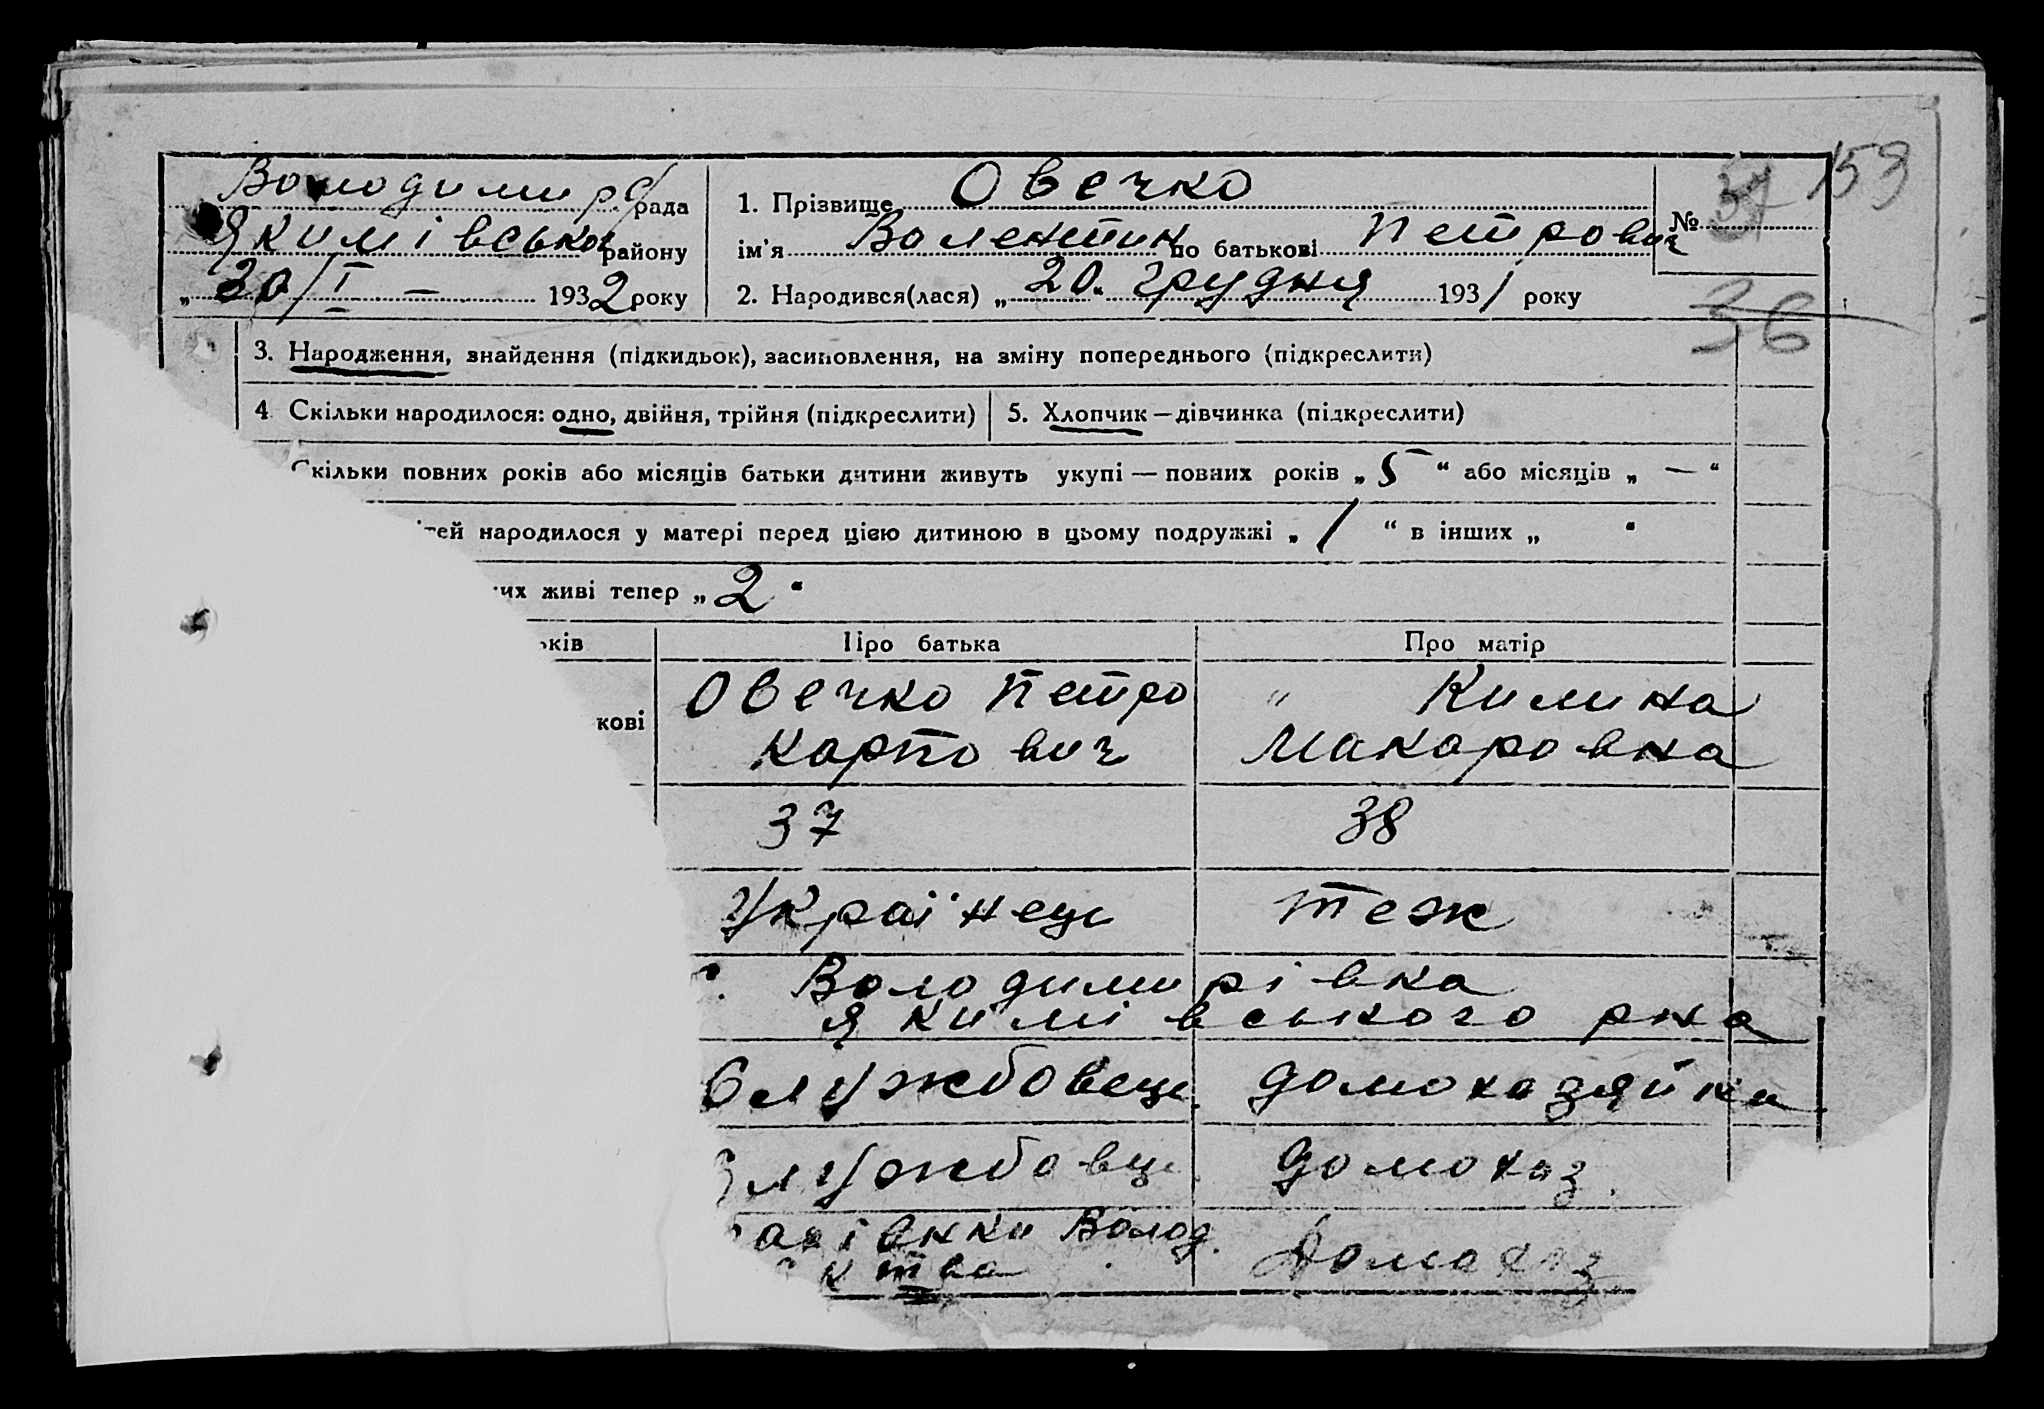 Володимир с/рада
Якимівського району
„ 30/I – 1932 року
1. Прізвище Овечко
ім'я Валентин по батькові Петрович
2. Народився(лася) „ 20. грудня 1931 року
№ 37 159
36
3. Народження, знайдення (підкидьок), засиновлення, на зміну попереднього (підкреслити)
4 Скільки народилося: одно, двійня, трійня (підкреслити)
5. Хлопчик — дівчинка (підкреслити)
Скільки повних років або місяців батьки дитини живуть укупі — повних років „ 5 “ або місяців „ — “
тей народилося у матері перед цією дитиною в цьому подружжі „ 1 “ в інших „ “
них живі тепер „ 2 “
ьків Про батька Про матір
кові
Овечко Петро
Карпович
" Килина
Макаровна
37 38
Українець теж
с. Володимирівка
Якимівського рна
Службовець. домохазяйка
Службовць. домохаз.
Волод.
Домахаз